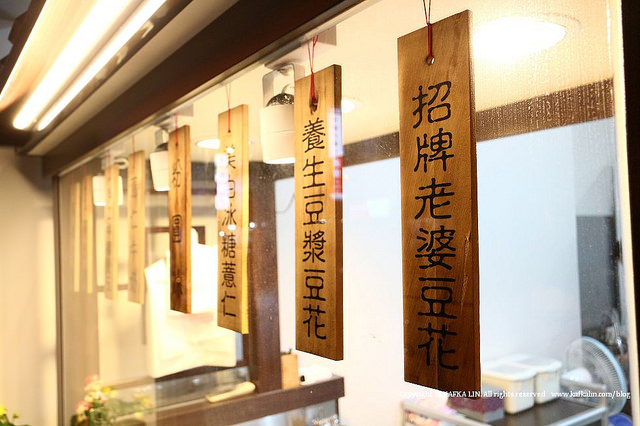 招牌老婆豆花
養生豆漿豆花
美白冰糖薏仁
KAFKA LIN All rights reserved www.kafkalin.com/blog